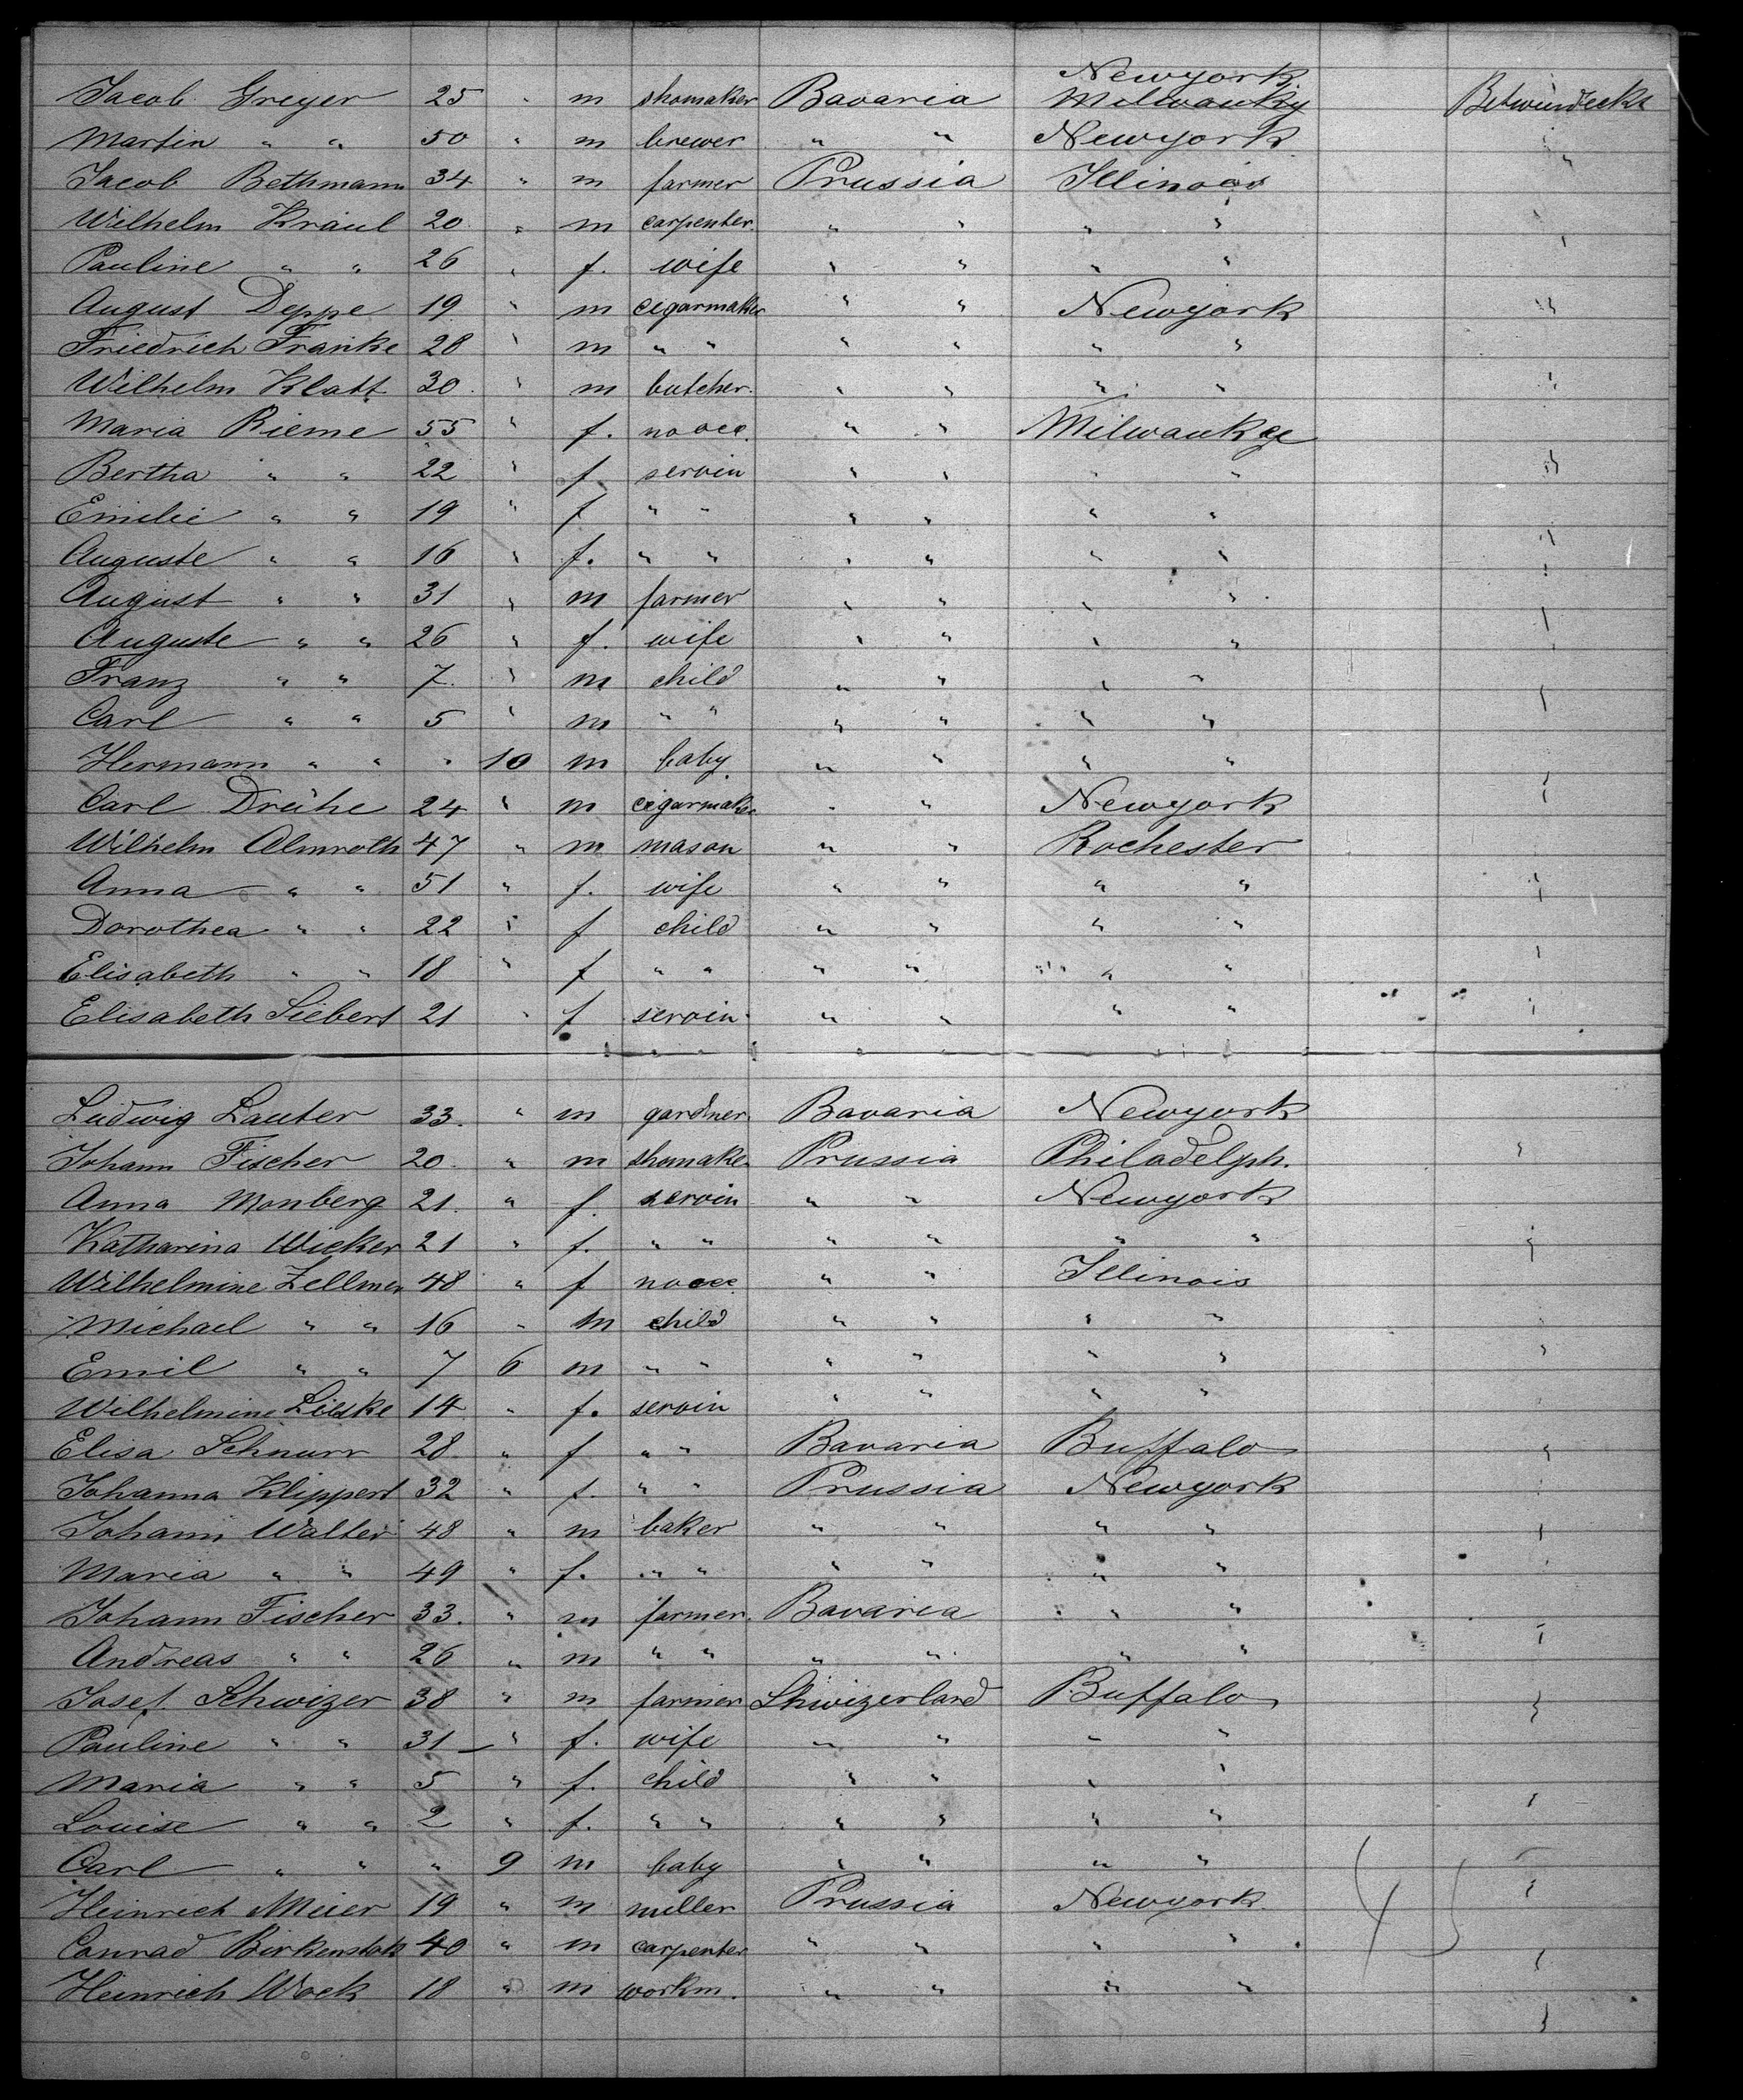 Jacob Greyer 25 " m shomaker Bavaria Newyork Milwaukiy Betwindecks
Martin " " 50 " m brewer " " Newyork "
Jacob Bethmann 34 " m farmer Prussia Illinois "
Wilhelm Kräul 20 " m carpenter " " " " "
Pauline " " 26 " f. wife " " " " "
August Deppe 19 " m cegarmaker " " Newyork "
Friedrich Franke 28 " m " " " " " "
Wilhelm Klatt 30 " m butcher. " " " " "
Maria Rieme 55 " f. no occ. " " Milwaukee
Bertha " " 22 " f servin " " " " "
Emilie " " 19 " f " " " " " "
Auguste " " 16 " f. " " " " " " "
August " " 31 " m farmer " " " " "
Auguste " " 26 " f. wife " " " " "
Franz " " 7 " m child " " " "
Carl " " 5 " m " " " " " " "
Hermann " " " 10 m baby " " " "
Carl Drühe 24 " m cegarmaker " " Newyork "
Wilhelm Almroth 47 " m mason " " Rochester
Anna " " 51 " f. wife " " " " "
Dorothea " " 22 " f child " " " "
Elisabeth " " 18 " f " " " " " " "
Elisabeth Siebert 21 " f servin " " " " "
Ludwig Lauter 33. " m gardner. Bavaria Newyork
Johann Fischer 20. " m shomaker Prussia Philadelph. "
Anna Monberg 21. " f. servin " " Newyork
Katharina Wicker 21 " f. " " " " " " "
Wilhelmine Zellmer 48 " f no occ. " " Illinois
Michael " " 16 " m child " " " " "
Emil " " 7 6 m " " " " " " "
Wilhelmine 14 " f. servin " " " " "
Elisa Schnurr 28. " f " " Bavaria Buffalo "
Johanna Klippert 32 " f. " " Prussia Newyork "
Johann Walter 48 " m baker " " " " "
Maria " " 49 " f. " " " " " " "
Johann Fischer 33. " m farmer. Bavaria " "
Andreas " " 26 " m " " " " " " "
Josef. Schwizer 38 " m farmer Shwizerland Buffalo "
Pauline " " 31 " f. wife " " " "
Maria " " 5 " f. child " " " "
Louise " " 2 " f. " " " " " " "
Carl " " " 9 m baby " " " " "
Heinrich Meier 19 " m miller Prussia Newyork. "
Conrad Birkenstok 40 " m carpenter " " " "
Heinrich Wock 18 " m workm. " " " " "
45